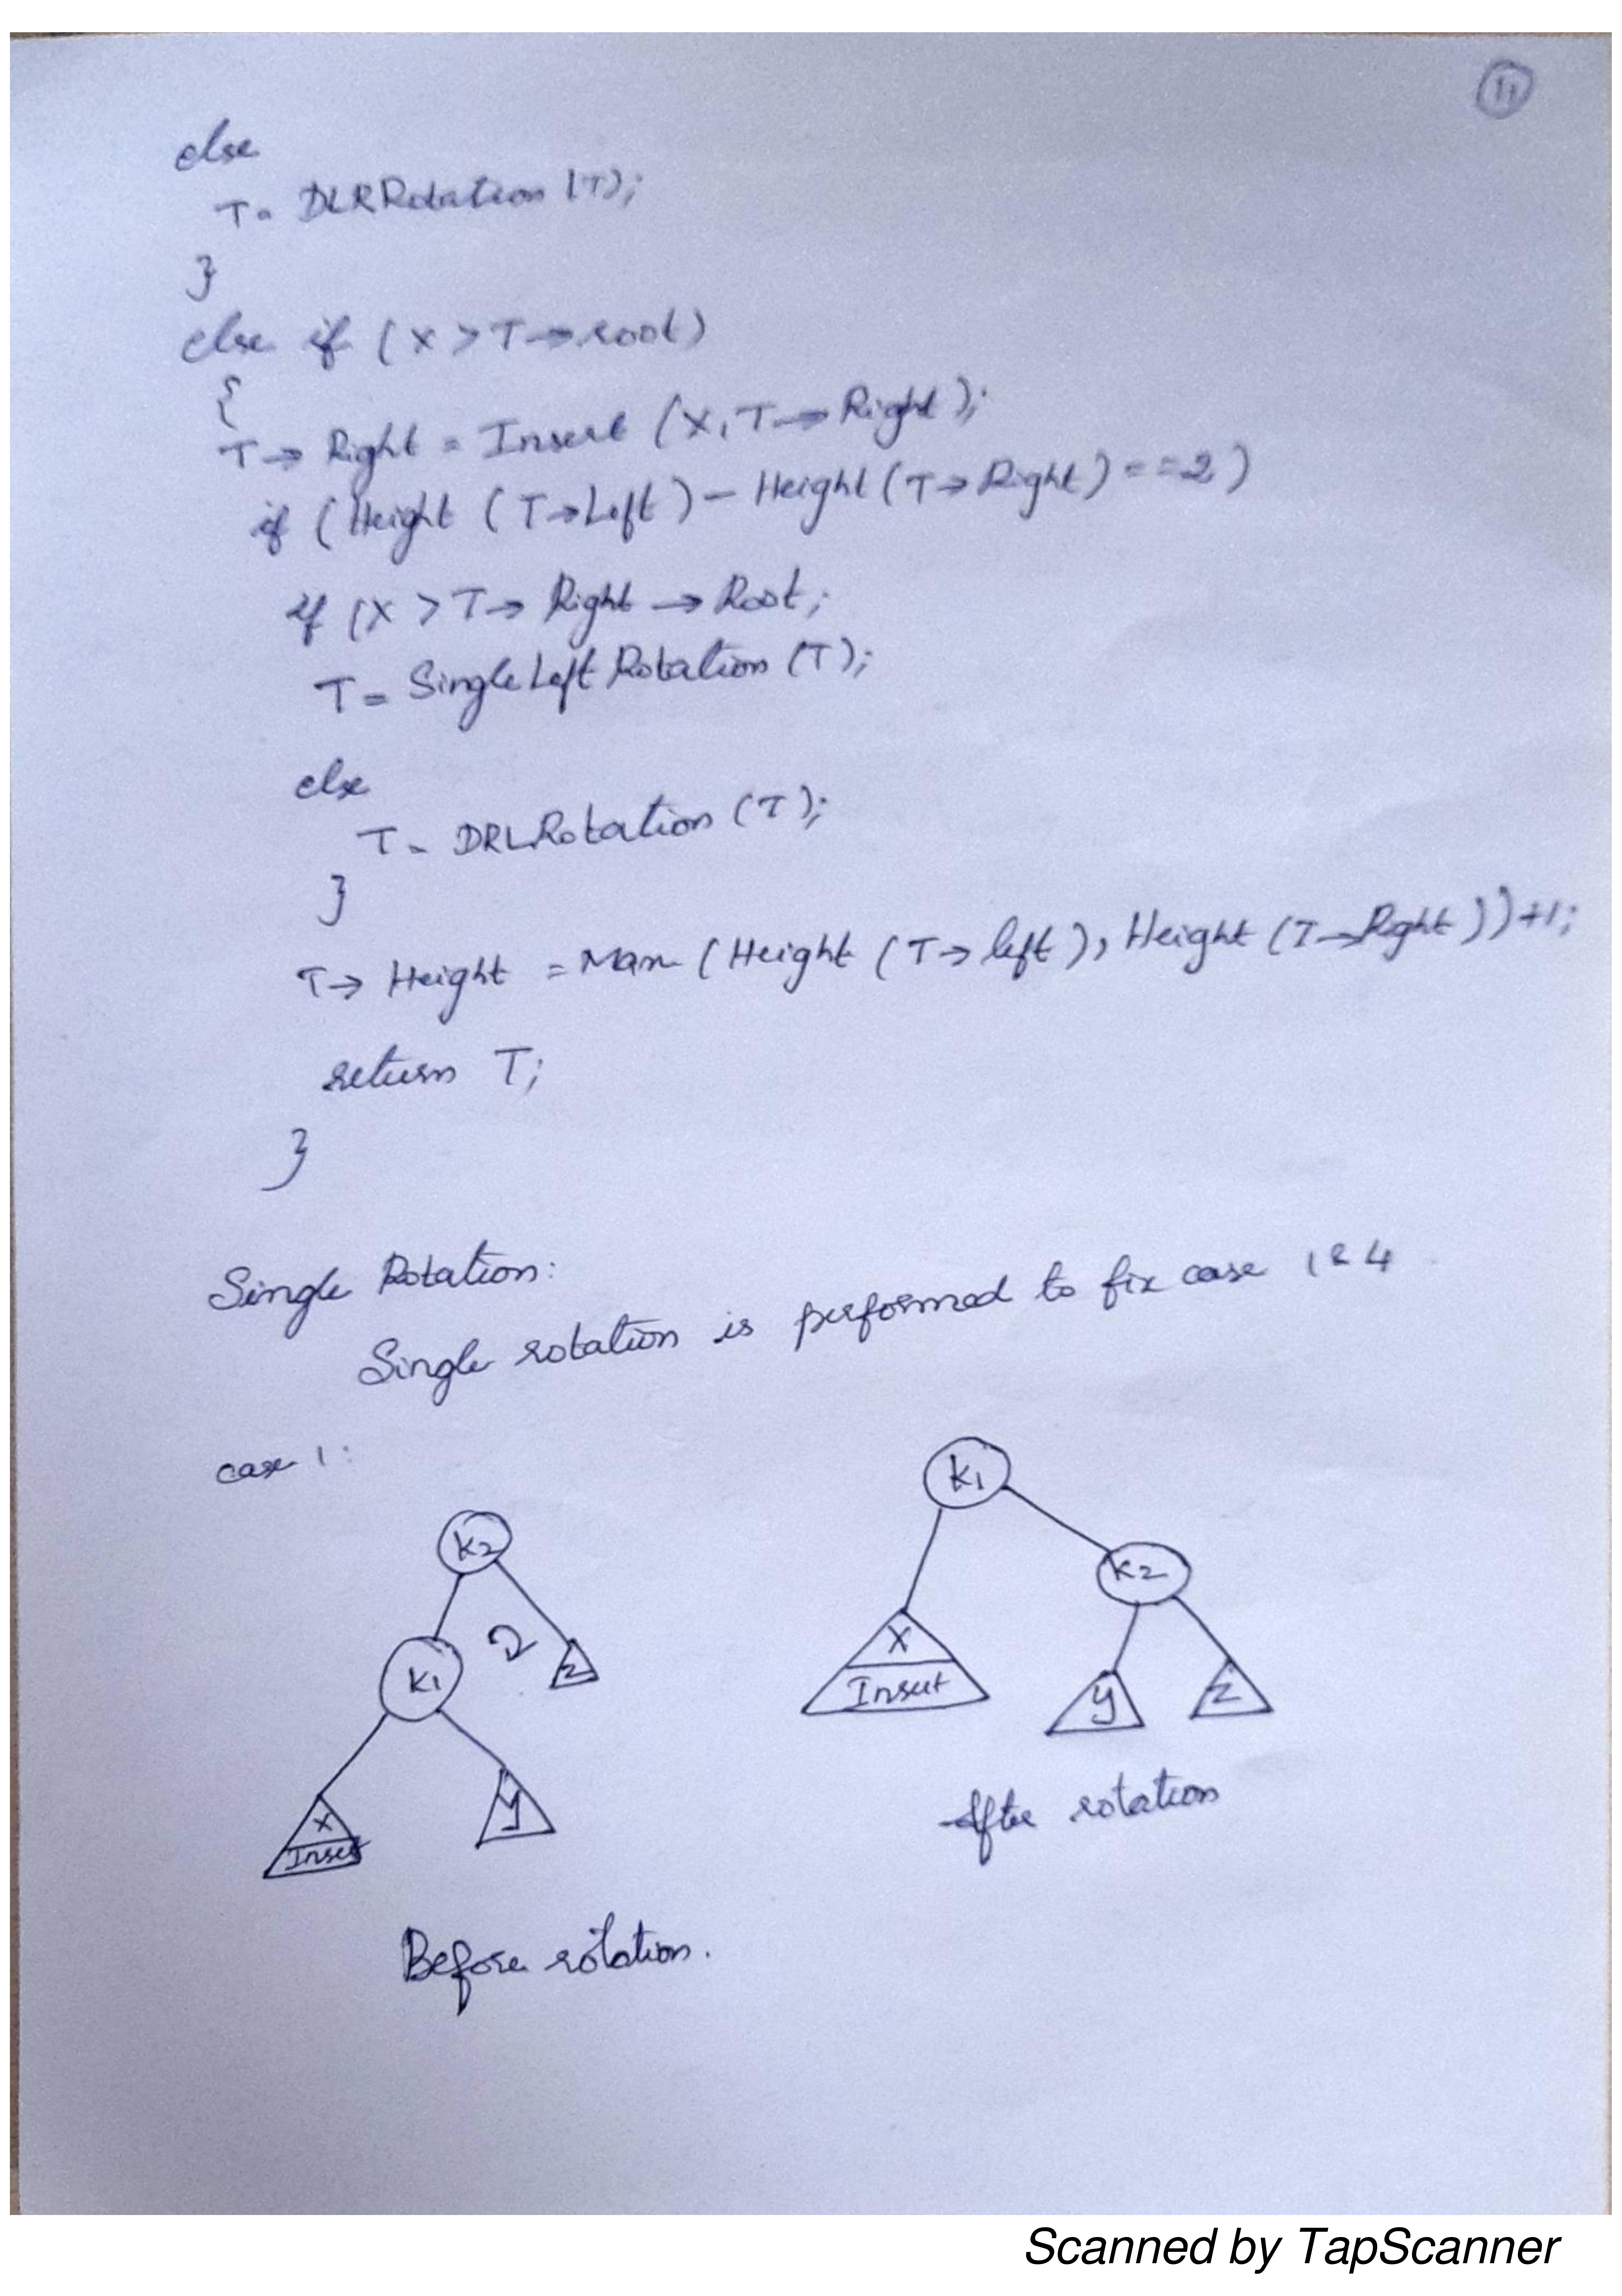 11
else
T = DLRRotation (T);
}
else if (X > T → root)
{
T → Right = Insert (X, T → Right);
if (Height (T → Left) - Height (T → Right) = = 2)
if (X > T → Right → Root;
T = SingleLeft Rotation (T);
else
T = DRLRotation (T);
}
T → Height = Max (Height (T → left), Height (T → Right)) + 1;
return T;
}
Single Rotation:
Single rotation is performed to fix case 1 & 4
case 1:
K2
K1
Z
X
Insert
Y
Before rotation.
K1
K2
X
Insert
Y
Z
After rotation
Scanned by TapScanner